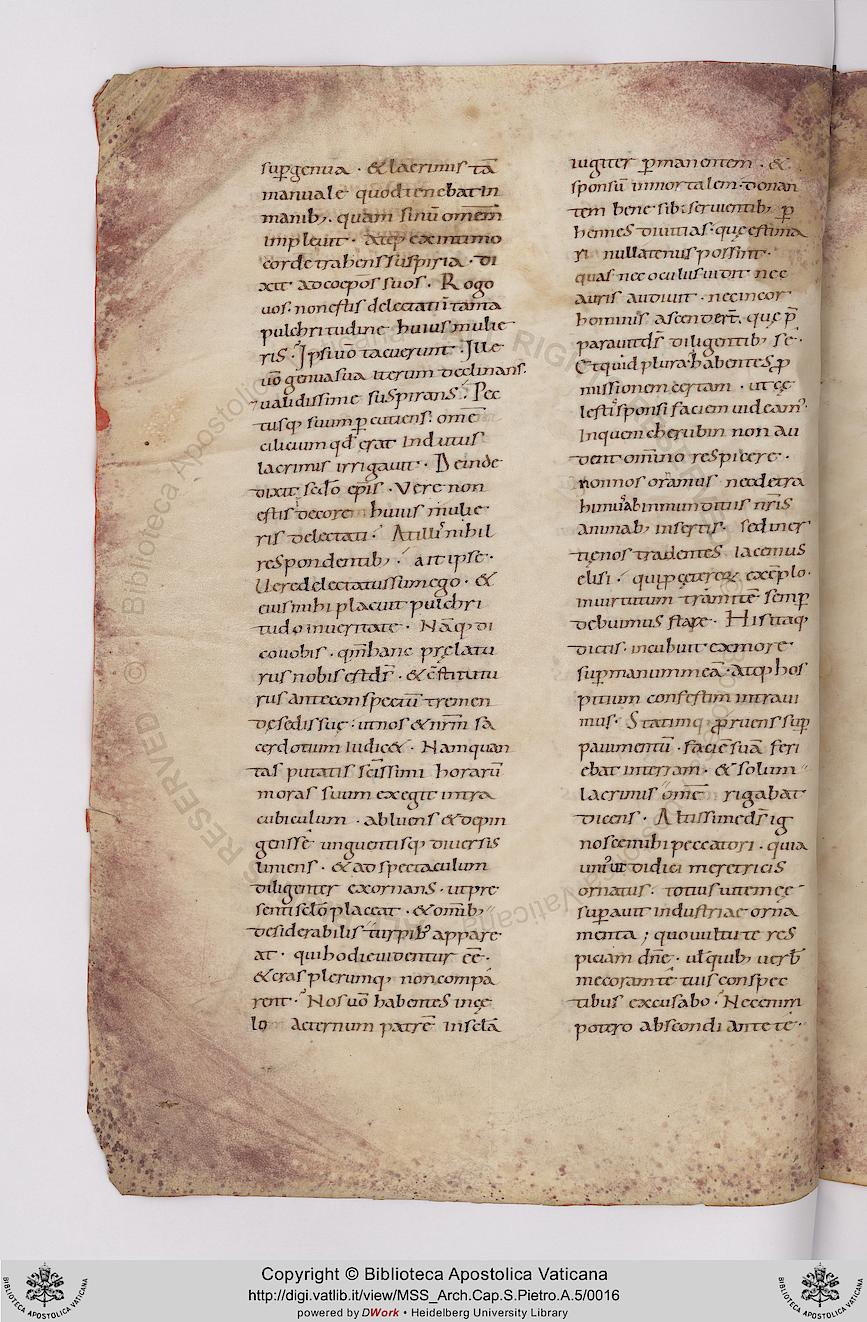 sup genua · & lacrimis tā
manuale quod tenebat in
manib; · quam sinū omēm
impleuit · atq; ex intimo
corde trahens suspiria · di
xit ad coepos suos · Rogo
uos · non estis delectati ī tanta
pulchritudine huius mulie
ris · Ipsi uō tacuerunt · Ille
uō genua sua iterum declinans ·
ualidissime suspirans · Pec
tusq; suum p cutiens · omē
cilicium qd erat indutus
lacrimis irrigauit · Deinde
dixit sc̄is ep̄is · Vere non
estis decore huius mulie
ris delectati · At illis nihil
respondentib; · ait ipse ·
Uere delectatus sum ego · &
eius mihi placuit pulchri
tudo in ueritate · Nāq; di
co uobis · qm̄ hanc prelatu
rus nobis est d̄s · & c̄stitutu
rus ante conspectū tremen
dę sedis suę · ut nos & nr̄m sa
cerdotum iudic& · Nam quan
tas putatis sc̄issimi horarū
moras suum exegit intra
cubiculum · abluens & depin
gens sē unguentisq; diuersis
liniens · & ad spectaculum
diligenter exornans · ut pre
senti sc̄lo placeat · & omib;
desiderabilis turpib; appare
at · qui hodie uidentur eē ·
& cras plerumq; non compa
rent · Nos uō habentes in cę
lo aeternum patrē in sc̄la
iugiter pmanentem · &
sponsū inmortalem · donan
tem bene sibi seruientib; p
hennes diuitias · quę estima
ri nullatenus possint ·
quas nec oculus uidit nec
auris audiuit · nec in cor
hominis ascendert̄ · quę p̄
parauit d̄s diligentib; sē ·
Et quid plura habentes p
missionem certam · ut cę
lestis sponsi faciem uideam ·
in quem cherubin non au
dent omīno respicere ·
non nos ornamus nec detra
himus ab inmunditiis nr̄is
animab; insertis · sed iner
tię nos tradentes iacemus
elisi · qui p cęterorę exēplo ·
in uirtutum trāmitē semp
debuimus stare · His itaq;
dictis · incubuit ex more
sup manum meā · atq; hos
pitium confestim intraui
mus · Statimq; pruens sup
pauimentū · faciē suā feri
ebat in terram · & solum
lacrimis omē rigabat
dicens · Altissime d̄s ig
nosce mihi peccatori · quia
uni didici meretricis
ornatus · totius uitę meę
supauit industriae orna
menta ; quo uultu te res
piciam dn̄e · ul quib; uerb̄
me coram tē tuis conspec
tibus excusabo · Nec enim
potero abscondi ante te ·
Copyright © Biblioteca Apostolica Vaticana
http://digi.vatlib.it/view/MSS_Arch.Cap.S.Pietro.A.5/0016
powered by DWork • Heidelberg University Library